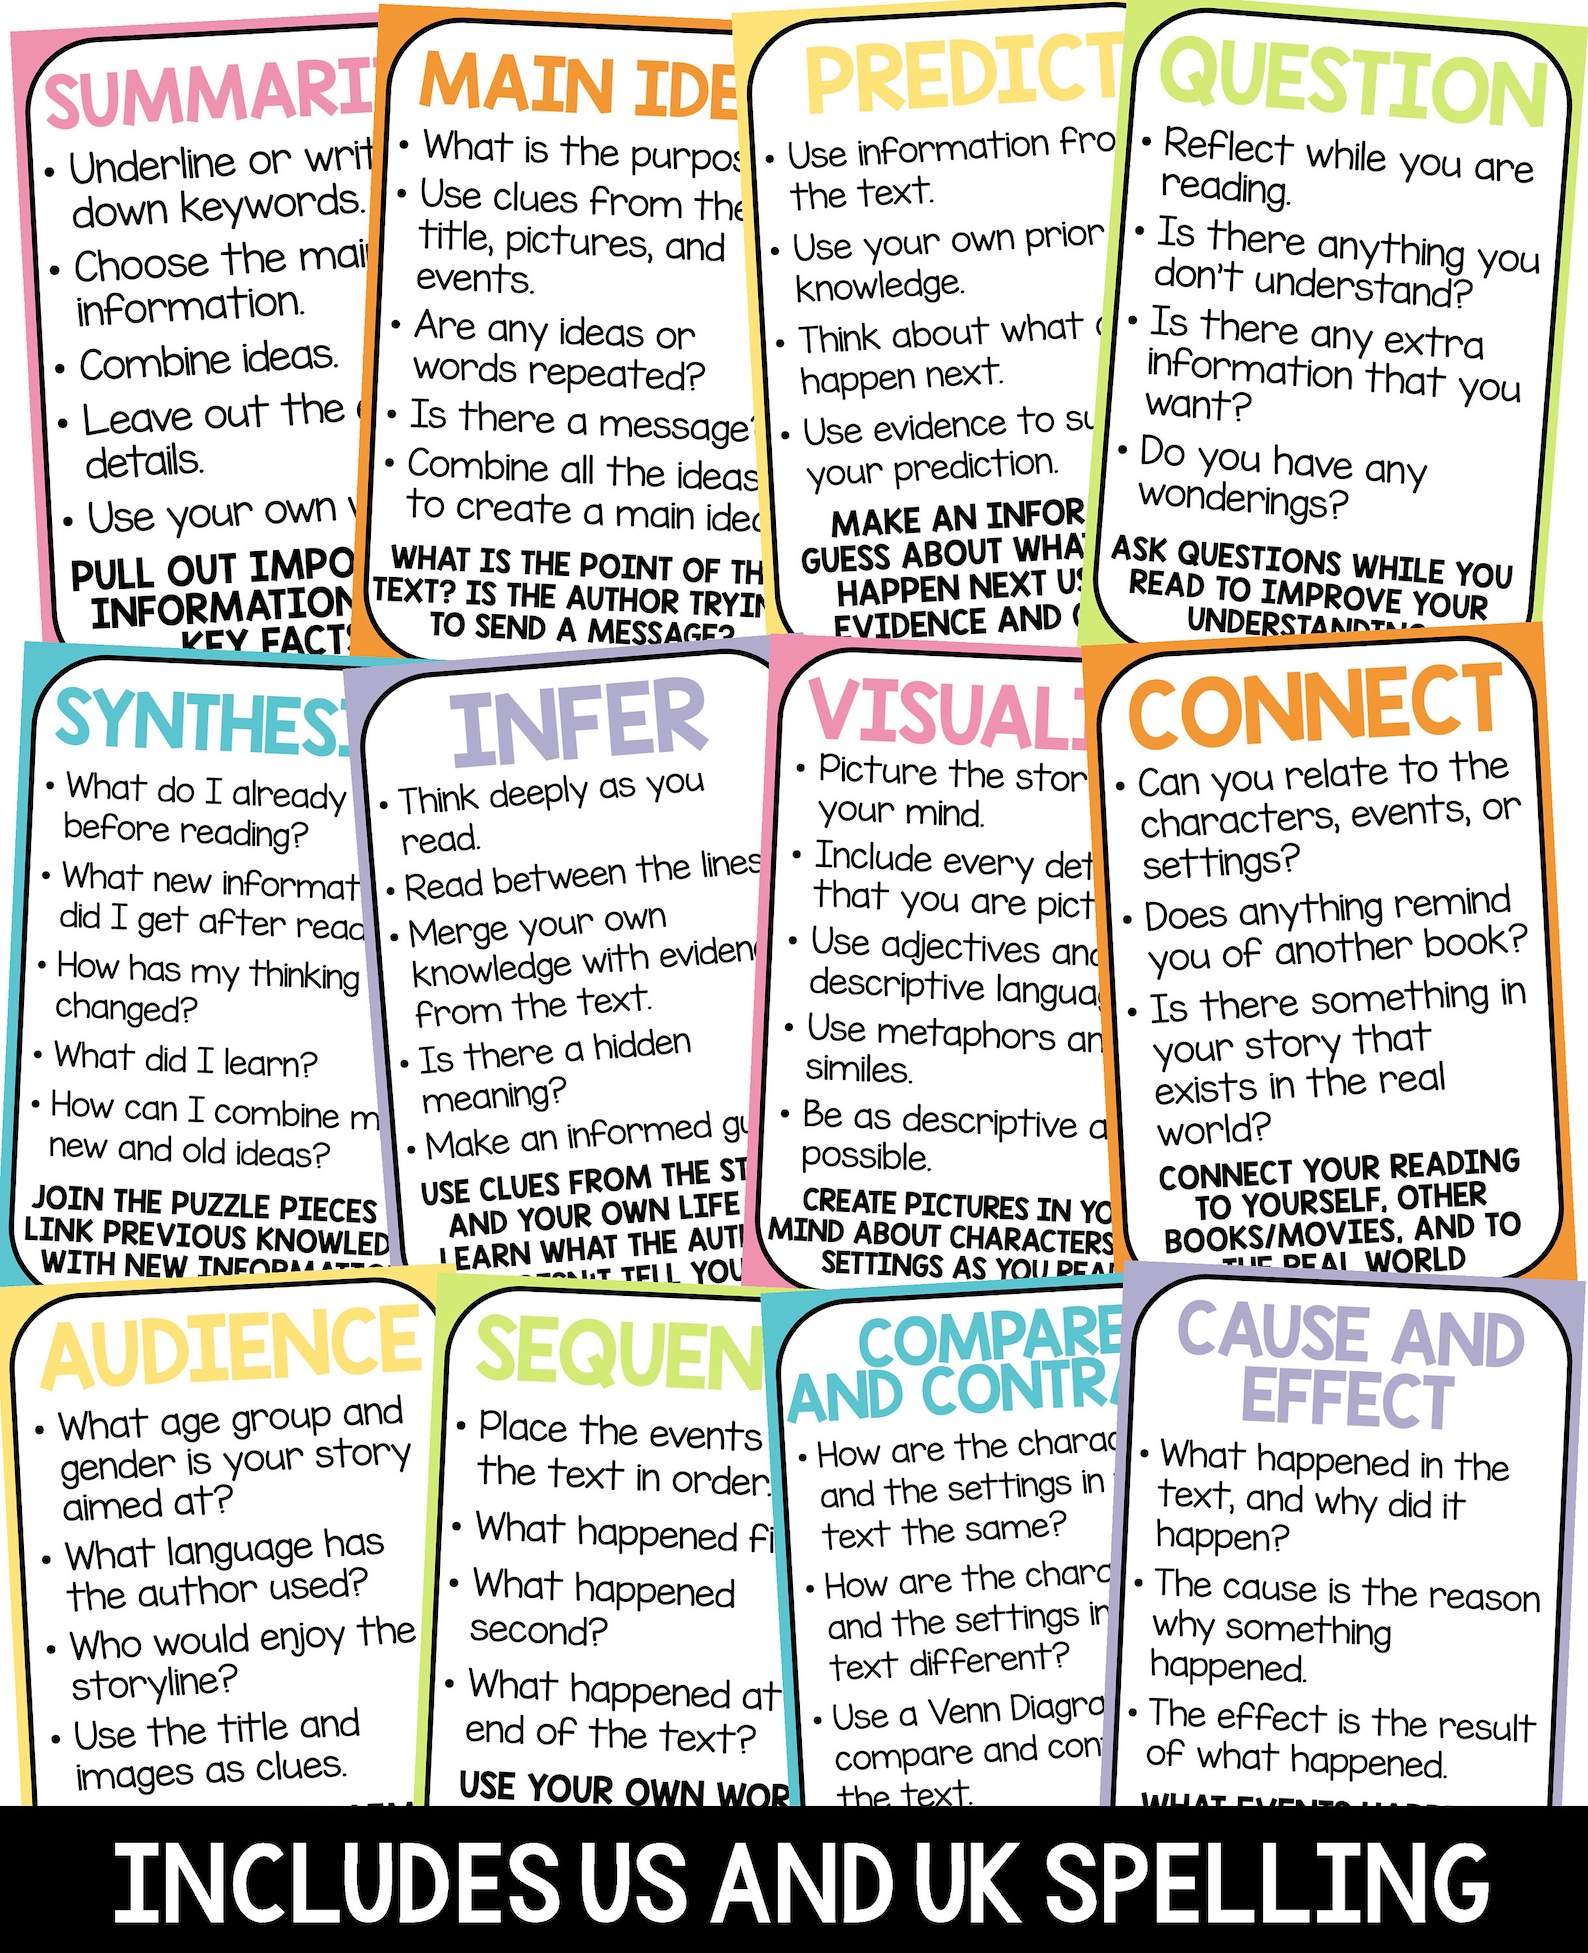 SUMMARI
• Underline or writ
down keywords.
• Choose the mai
information.
• Combine ideas.
• Leave out the
details.
• Use your own
PULL OUT IMPO
INFORMATION
KEY FACTS
MAIN IDE
• What is the purpos
• Use clues from the
title, pictures, and
events.
• Are any ideas or
words repeated?
• Is there a message?
• Combine all the ideas
to create a main idea
WHAT IS THE POINT OF TH
TEXT? IS THE AUTHOR TRYIN
TO SEND A MESSAGE?
PREDICT
• Use information fro
the text.
• Use your own prior
knowledge.
• Think about what
happen next.
• Use evidence to su
your prediction.
MAKE AN INFOR
GUESS ABOUT WHA
HAPPEN NEXT US
EVIDENCE AND
QUESTION
• Reflect while you are
reading.
• Is there anything you
don't understand?
• Is there any extra
information that you
want?
• Do you have any
wonderings?
ASK QUESTIONS WHILE YOU
READ TO IMPROVE YOUR
UNDERSTANDING
SYNTHESI
• What do I already
before reading?
• What new informat
did I get after read
• How has my thinking
changed?
• What did I learn?
• How can I combine m
new and old ideas?
JOIN THE PUZZLE PIECES
LINK PREVIOUS KNOWLED
WITH NEW INFORMATIO
INFER
• Think deeply as you
read.
• Read between the lines
• Merge your own
knowledge with eviden
from the text.
• Is there a hidden
meaning?
• Make an informed gu
USE CLUES FROM THE ST
AND YOUR OWN LIFE
LEARN WHAT THE AUTH
DOESN'T TELL YOU
VISUALI
• Picture the stor
your mind.
• Include every det
that you are pict
• Use adjectives and
descriptive languag
• Use metaphors an
similes.
• Be as descriptive a
possible.
CREATE PICTURES IN YO
MIND ABOUT CHARACTERS
SETTINGS AS YOU REA
CONNECT
• Can you relate to the
characters, events, or
settings?
• Does anything remind
you of another book?
• Is there something in
your story that
exists in the real
world?
CONNECT YOUR READING
TO YOURSELF, OTHER
BOOKS/MOVIES, AND TO
THE REAL WORLD
AUDIENCE
• What age group and
gender is your story
aimed at?
• What language has
the author used?
• Who would enjoy the
storyline?
• Use the title and
images as clues.
SEQUEN
• Place the events
the text in order.
• What happened fi
• What happened
second?
• What happened at
end of the text?
USE YOUR OWN WOR
COMPARE
AND CONTRA
• How are the charac
and the settings in
text the same?
• How are the chara
and the settings in
text different?
• Use a Venn Diagra
compare and con
the text.
CAUSE AND
EFFECT
• What happened in the
text, and why did it
happen?
• The cause is the reason
why something
happened.
• The effect is the result
of what happened.
WHAT EVENTS HAPP
INCLUDES US AND UK SPELLING